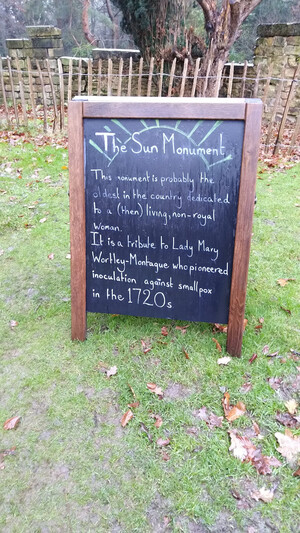 The Sun Monument
This monument is probably the
oldest in the country dedicated
to a (then) living, non-royal
woman.
It is a tribute to Lady Mary
Wortley-Montague who pioneered
inoculation against smallpox
in the 1720s